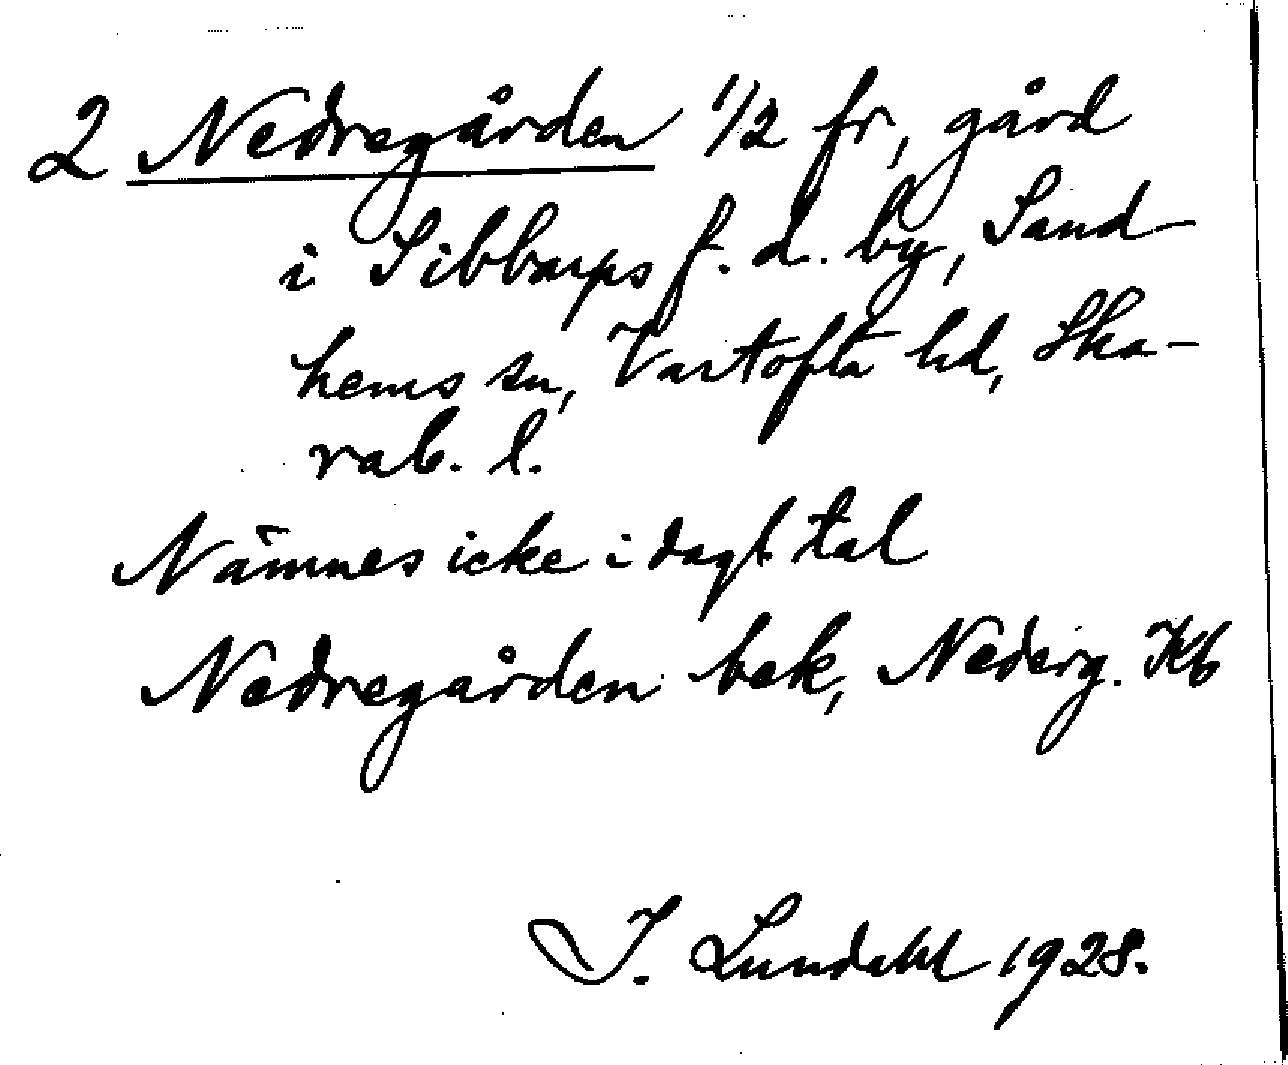 2 Nedregården 1/2 fr, gård
i Sibbarps f. d. by, Sand-
hems sn, Vartofta hd, Ska-
rab. l.
Nämnes icke i dagl. tal
Nedregården bek, Nederg. Kb
I. Lundahl 1928.